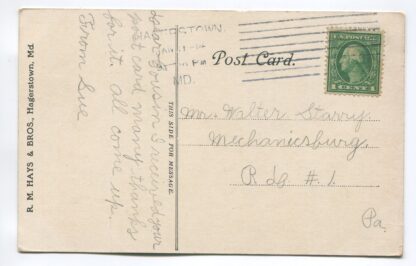 R. M. HAYS & BROS., Hagerstown, Md.
Dear Cousin I received your
post card many thanks
for it. all come up.
From Sue
THIS SIDE FOR MESSAGE.
MD.
Post Card.
U.S. POSTAGE
1 CENT 1
Mr. Walter Starry
Mechanicsburg
R d # 1.
Pa.